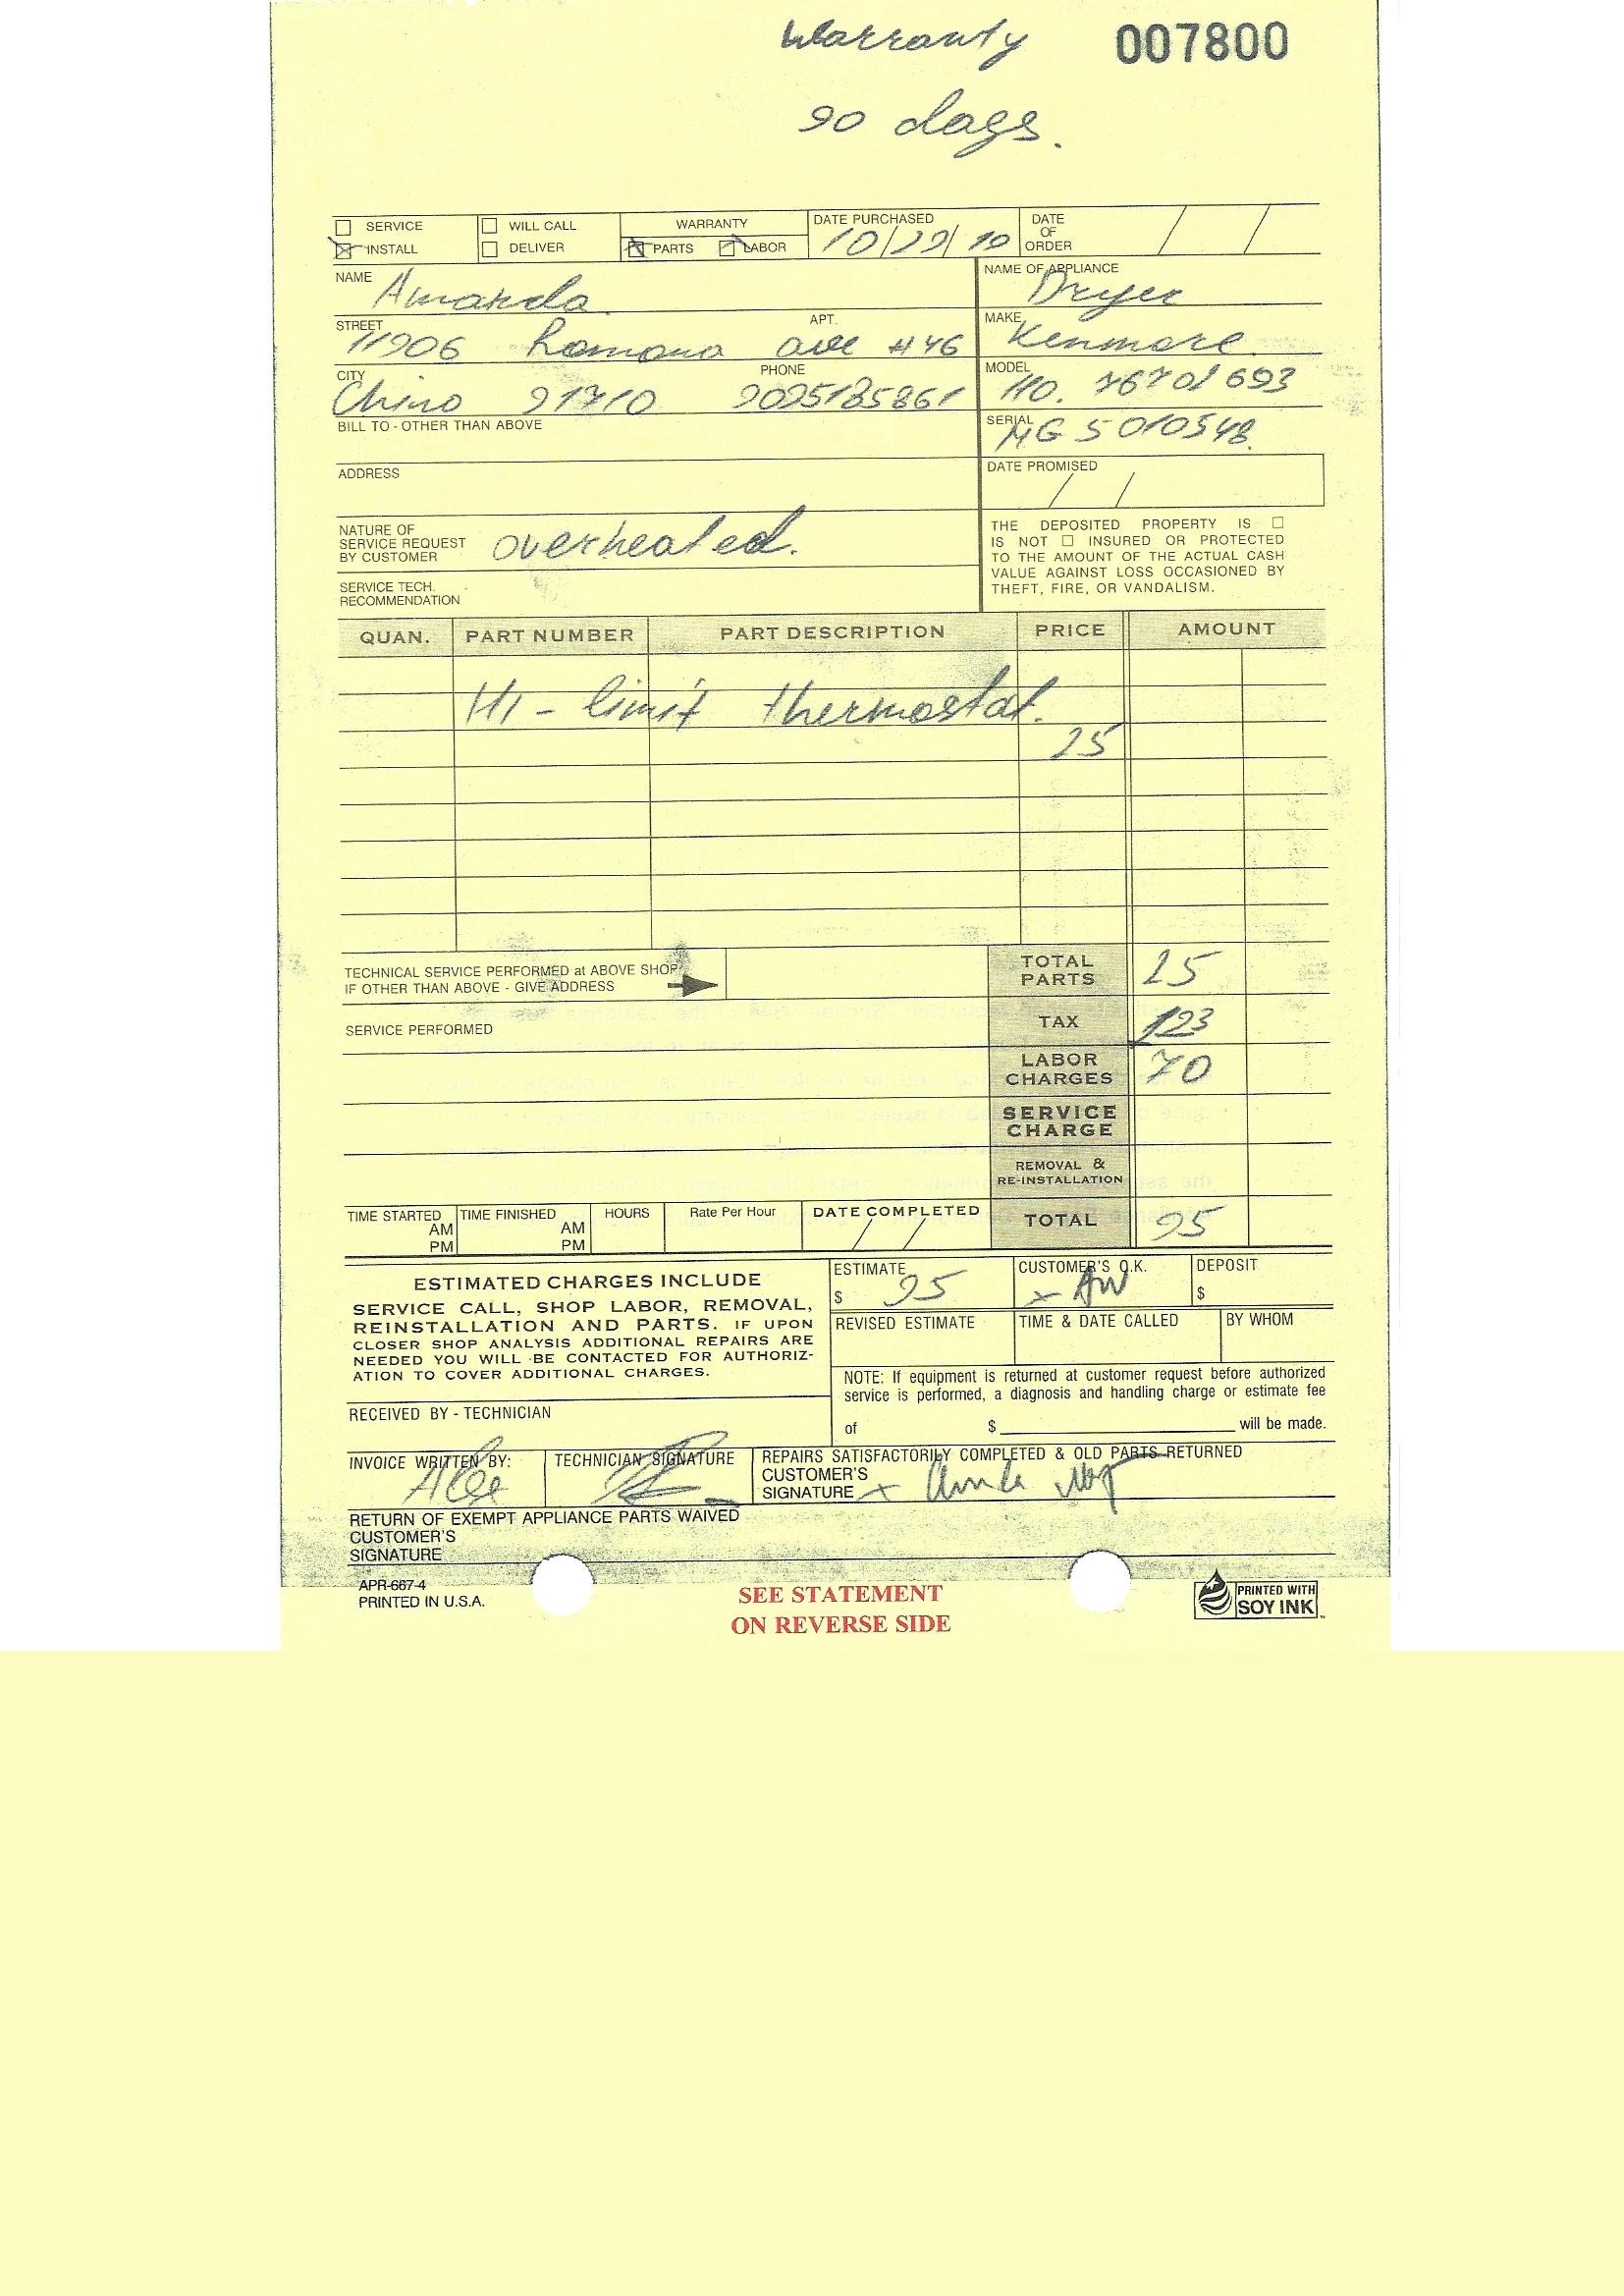 Warranty 007800
90 days.
SERVICE WILL CALL WARRANTY DATE PURCHASED DATE OF ORDER
INSTALL DELIVER PARTS LABOR 10/29/10
NAME Amanda NAME OF APPLIANCE Dryer
STREET 11906 Ramona ave APT. #46 MAKE Kenmore
CITY Chino 91710 PHONE 9095185861 MODEL 110. 76701693
BILL TO - OTHER THAN ABOVE SERIAL MG 5010548
ADDRESS DATE PROMISED / /
NATURE OF
SERVICE REQUEST overheated.
BY CUSTOMER
SERVICE TECH.
RECOMMENDATION
THE DEPOSITED PROPERTY IS
IS NOT INSURED OR PROTECTED
TO THE AMOUNT OF THE ACTUAL CASH
VALUE AGAINST LOSS OCCASIONED BY
THEFT, FIRE, OR VANDALISM.
QUAN. PART NUMBER PART DESCRIPTION PRICE AMOUNT
Hi - limit thermostat.
25
TECHNICAL SERVICE PERFORMED at ABOVE SHOP
IF OTHER THAN ABOVE - GIVE ADDRESS
TOTAL PARTS 25
SERVICE PERFORMED
TAX 123
LABOR CHARGES 70
SERVICE CHARGE
REMOVAL & RE-INSTALLATION
TIME STARTED AM PM TIME FINISHED AM PM HOURS Rate Per Hour DATE COMPLETED / / TOTAL 95
ESTIMATED CHARGES INCLUDE
SERVICE CALL, SHOP LABOR, REMOVAL,
REINSTALLATION AND PARTS. IF UPON
CLOSER SHOP ANALYSIS ADDITIONAL REPAIRS ARE
NEEDED YOU WILL BE CONTACTED FOR AUTHORIZ-
ATION TO COVER ADDITIONAL CHARGES.
ESTIMATE $ 95 CUSTOMER'S O.K. x AW DEPOSIT $
REVISED ESTIMATE TIME & DATE CALLED BY WHOM
NOTE: If equipment is returned at customer request before authorized
service is performed, a diagnosis and handling charge or estimate fee
of $ will be made.
RECEIVED BY - TECHNICIAN
INVOICE WRITTEN BY: TECHNICIAN SIGNATURE REPAIRS SATISFACTORILY COMPLETED & OLD PARTS RETURNED
CUSTOMER'S
SIGNATURE x
RETURN OF EXEMPT APPLIANCE PARTS WAIVED
CUSTOMER'S
SIGNATURE
APR-667-4
PRINTED IN U.S.A.
SEE STATEMENT
ON REVERSE SIDE
PRINTED WITH
SOY INK